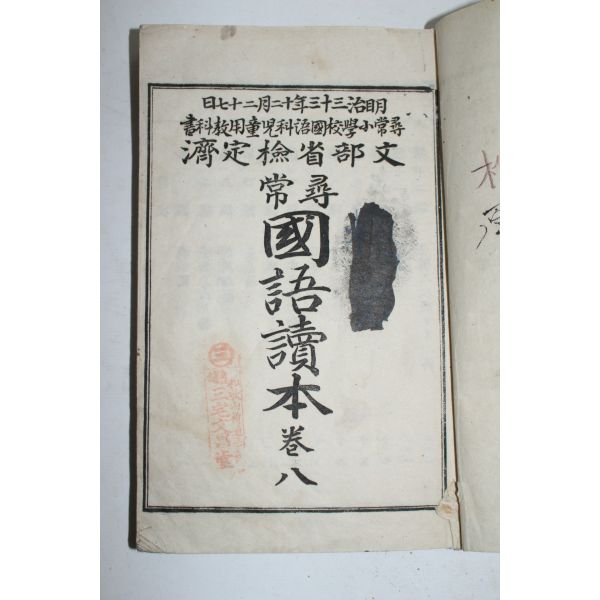 明治三十三年十二月二十七日
尋常小學校國語科児童用教科書
文部省檢定濟
尋常
國語讀本 巻八